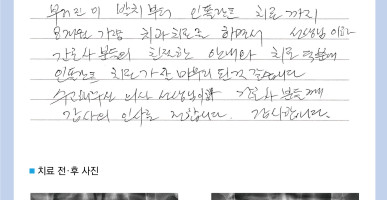 부러진 이 발치부터 인플란트 치료까지
오래된 가량 치과치료를 하면서 선생님 이하
간호사 분들의 친절한 안내와 치료 덕분에
인플란트 치료가 잘 마무리 된것 같습니다
수고해주신 의사 선생님과 간호사 분들께
감사의 인사를 전합니다. 감사합니다.
■ 치료 전·후 사진